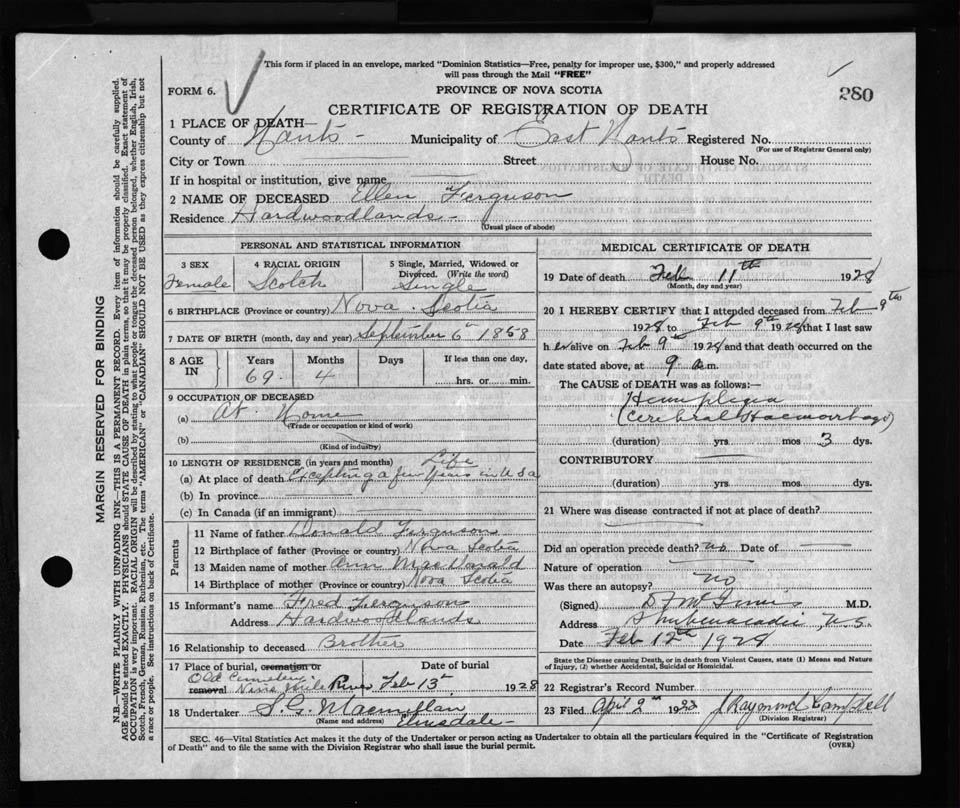 This form if placed in an envelope, marked "Dominion Statistics—Free, penalty for improper use, $300," and properly addressed
will pass through the Mail "FREE"
FORM 6.
PROVINCE OF NOVA SCOTIA
280
CERTIFICATE OF REGISTRATION OF DEATH
1 PLACE OF DEATH—
County of Hants - Municipality of East Hants Registered No.
(For use of Registrar General only)
City or Town Street House No.
If in hospital or institution, give name
2 NAME OF DECEASED Ellen Ferguson
Residence Hardwoodlands -
(Usual place of abode)
PERSONAL AND STATISTICAL INFORMATION
3 SEX 4 RACIAL ORIGIN 5 Single, Married, Widowed or
Divorced. (Write the word)
Female Scotch Single
6 BIRTHPLACE (Province or country) Nova Scotia
7 DATE OF BIRTH (month, day and year) September 6th 1858
8 AGE IN Years Months Days If less than one day,
69 4 hrs. or min.
9 OCCUPATION OF DECEASED
(a) At Home
(Trade or occupation or kind of work)
(b)
(Kind of industry)
10 LENGTH OF RESIDENCE (in years and months) Life
(a) At place of death Excepting a few years in U S a
(b) In province
(c) In Canada (if an immigrant)
Parents
11 Name of father Donald Ferguson
12 Birthplace of father (Province or country) Nova Scotia
13 Maiden name of mother Ann MacDonald
14 Birthplace of mother (Province or country) Nova Scotia
15 Informant's name Fred Ferguson
Address Hardwoodlands
16 Relationship to deceased Brother
17 Place of burial, cremation or Date of burial
Old Cemetery
removal Nine Mile River Feb 13th 1928
18 Undertaker S. G. Macmillan
(Name and address) Elmsdale -
MEDICAL CERTIFICATE OF DEATH
19 Date of death Feb 11th 1928
(Month, day and year)
20 I HEREBY CERTIFY that I attended deceased from Feb 9th
1928 to Feb 9th 1928 that I last saw
h er alive on Feb 9th 1928 and that death occurred on
date stated above, at 9 a m.
The CAUSE of DEATH was as follows:—
Hemiplegia
(Cerebral Haemorrhage)
(duration) yrs. mos 3 dys.
CONTRIBUTORY
(duration) yrs. mos dys.
21 Where was disease contracted if not at place of death?
Did an operation precede death? no Date of
Nature of operation
Was there an autopsy? no
(Signed) M.D.
Address Shubenacadie, N. S.
Date Feb 12th 1928
State the Disease causing Death, or in death from Violent Causes, state (1) Means and Nature
of Injury, (2) whether Accidental, Suicidal or Homicidal.
22 Registrar's Record Number
23 Filed April 2nd J Raymond Campbell
(Division Registrar)
SEC. 46—Vital Statistics Act makes it the duty of the Undertaker or person acting as Undertaker to obtain all the particulars required in the "Certificate of Registration
of Death" and to file the same with the Division Registrar who shall issue the burial permit.
(OVER)
MARGIN RESERVED FOR BINDING
N.B.—WRITE PLAINLY WITH UNFADING INK—THIS IS A PERMANENT RECORD. Every item of information should be carefully supplied.
AGE should be stated EXACTLY. PHYSICIANS should STATE CAUSE OF DEATH in plain terms, so that it may be properly classified. Exact statement of
OCCUPATION is very important. RACIAL ORIGIN will be described by stating to what people or tongue the deceased person belonged, whether English, Irish,
Scotch, French, German, Russian, Ruthenian, etc. The terms "AMERICAN" or "CANADIAN" SHOULD NOT BE USED as they express citizenship but not
a race or people. See instructions on back of Certificate.